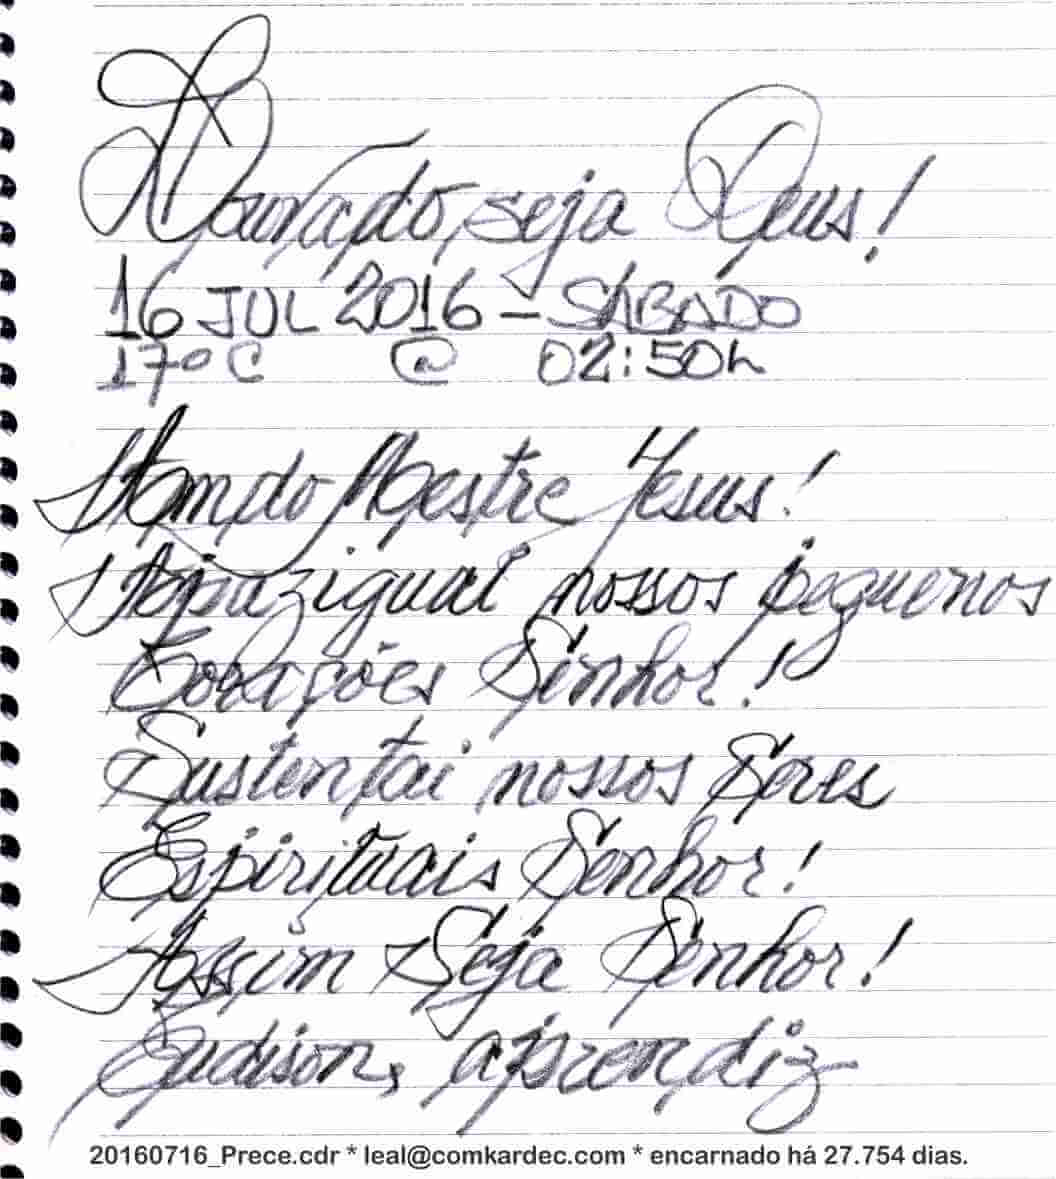 Louvado, seja Deus!
16 JUL 2016 - SÁBADO
17ºC @ 02:50h
Amado Mestre Jesus!
Apaziguai nossos pequenos
Corações Senhor!
Sustentai nossos Seres
Espirituais Senhor!
Assim Seja Senhor!
Eudison, aprendiz
20160716_Prece.cdr * leal@comkardec.com * encarnado há 27.754 dias.